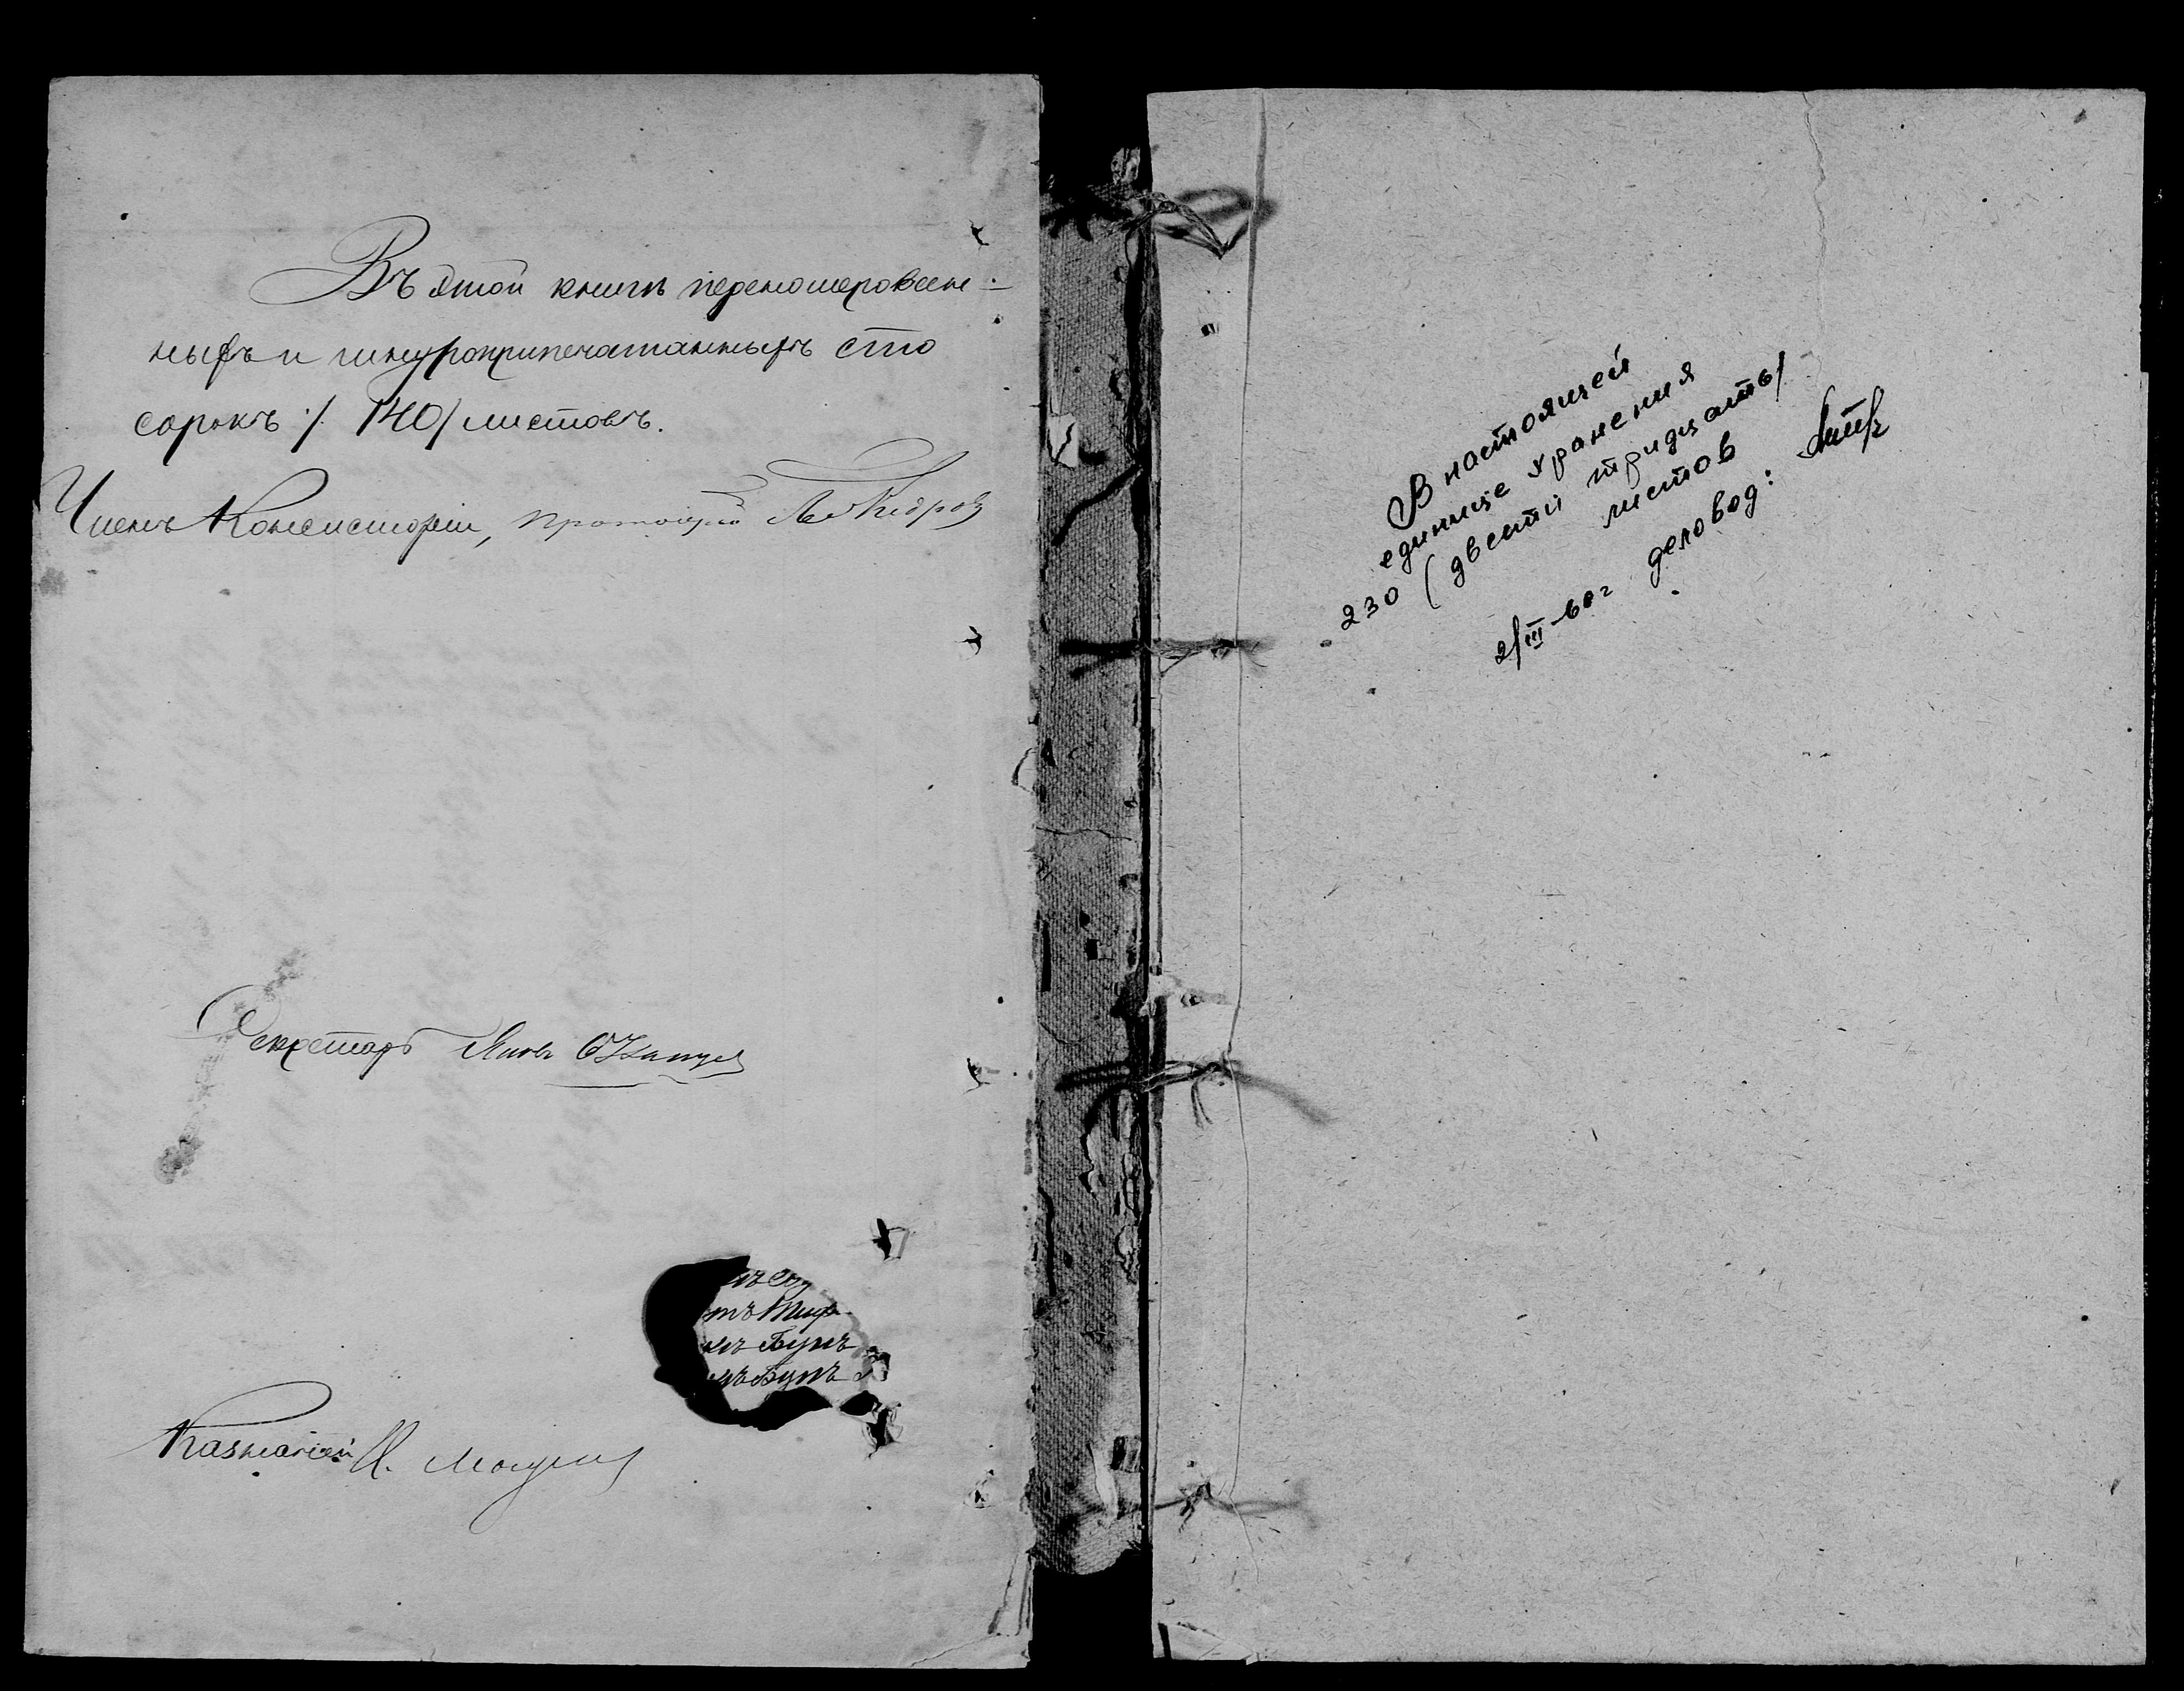 Въ этой книгѣ перенумерован-
ныхъ и шнуроприпечатанныхъ сто
сорокъ /. 140/ листовъ.
Членъ Консисторіи, протоіерей Кедров
Секретарь
ъ Бунъ
ъ Бунъ
Казначей Н.
В настоящей
единице хранения
230 (двести тридцать)
листов
2/III-60г деловод: